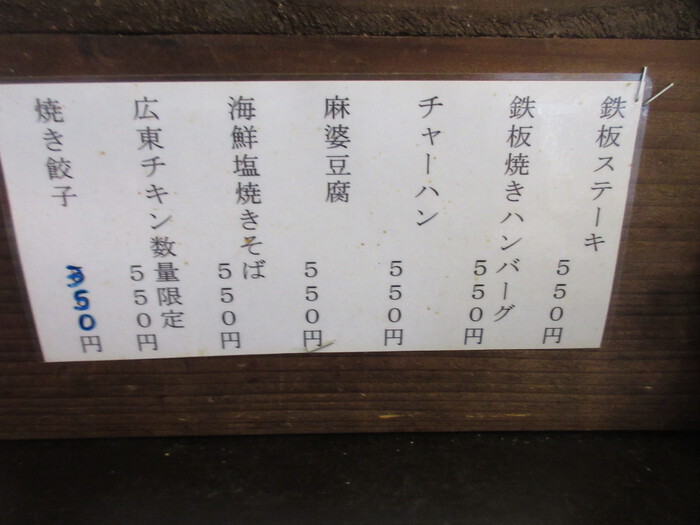 鉄板ステーキ
５５０円
鉄板焼きハンバーグ
５５０円
チャーハン
５５０円
麻婆豆腐
５５０円
海鮮塩焼きそば
５５０円
広東チキン数量限定
５５０円
焼き餃子
350円